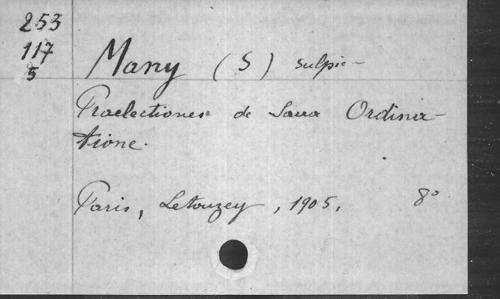 253
117
5
Many (S) sulpic-
Praelectiones de Sacra Ordina-
tione.
Paris, Letouzey, 1905. 8°